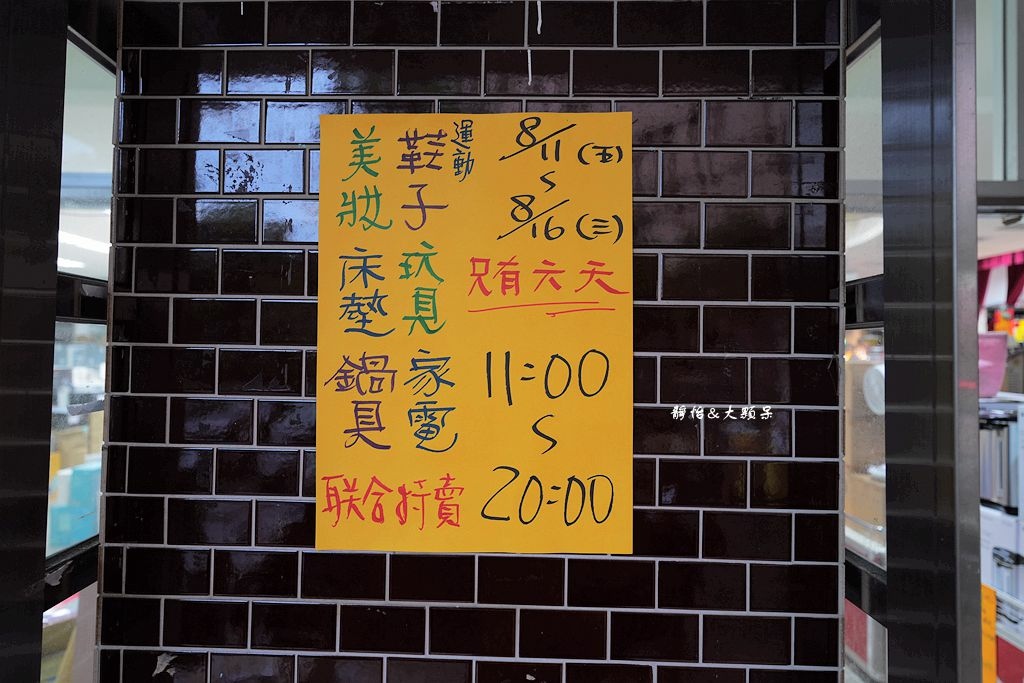 8/11(五)
S
8/16(三)
只有六天
11:00
S
20:00
運動
鞋子
美妝
玩具
床墊
家電
鍋具
联合特賣
靜怡&大顆呆